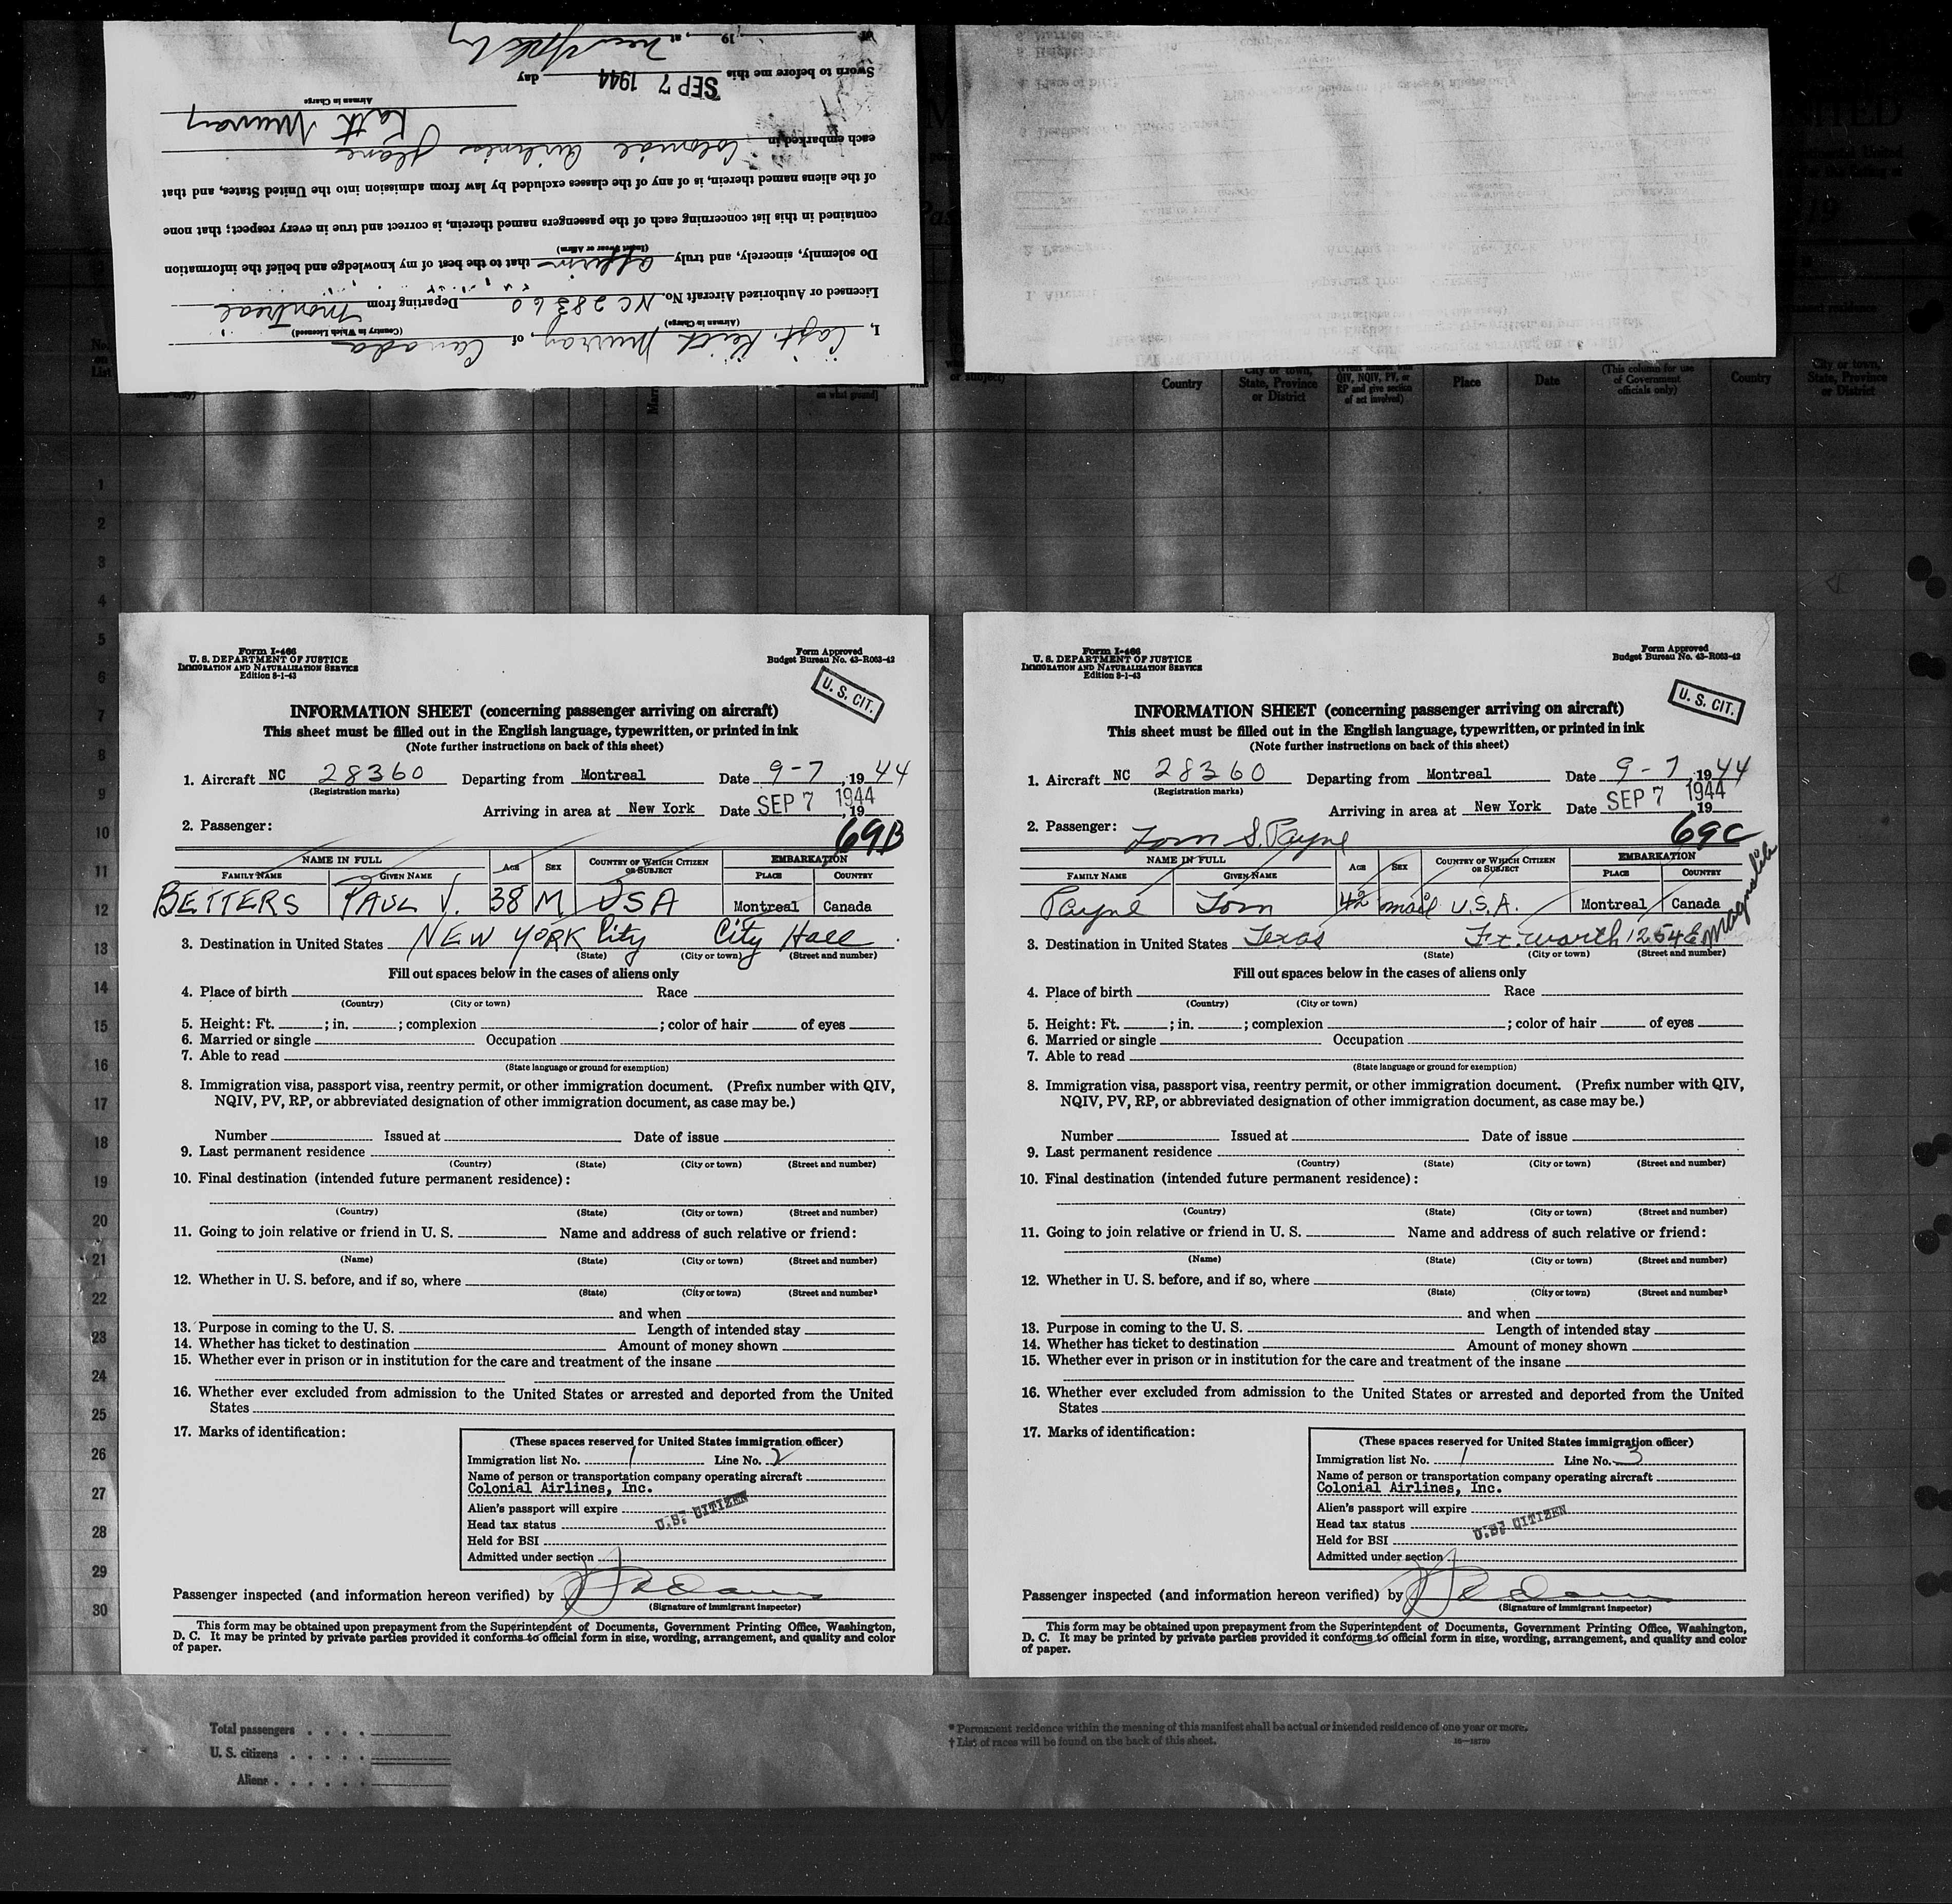 I, Capt. Keith Murray, of Canada
(Airman in Charge) (Country in Which Licensed)
Licensed or Authorized Aircraft No. NC 28360 Departing from Montreal
Do solemnly, sincerely, and truly affirm that to the best of my knowledge and belief the information
(Insert Swear or Affirm)
contained in this list concerning each of the passengers named therein, is correct and true in every respect; that none
of the aliens named therein, is of any of the classes excluded by law from admission into the United States, and that
each embarked in Colonial Airlines plane
Keith Murray
Airman in Charge
Sworn to before me this SEP 7 1944 day
of , 19 , at New York by
No. on List
City or town, State, Province or District
QIV, NQIV, PV, or RP and give section of act involved)
Country
Place
Date
(This column for use of Government officials only)
Country
City or town, State, Province or District
1
2
3
4
5
6
7
8
9
10
11
12
13
14
15
16
17
18
19
20
21
22
23
24
25
26
27
28
29
30
Form I-466
U. S. DEPARTMENT OF JUSTICE
IMMIGRATION AND NATURALIZATION SERVICE
Edition 8-1-43
Form Approved
Budget Bureau No. 43-R063-42
U. S. CIT.
INFORMATION SHEET (concerning passenger arriving on aircraft)
This sheet must be filled out in the English language, typewritten, or printed in ink
(Note further instructions on back of this sheet)
1. Aircraft NC 28360 Departing from Montreal Date 9-7, 1944
(Registration marks)
Arriving in area at New York Date SEP 7 1944, 19
2. Passenger: 69B
NAME IN FULL AGE SEX COUNTRY OF WHICH CITIZEN OR SUBJECT EMBARKATION
FAMILY NAME GIVEN NAME PLACE COUNTRY
BETTERS PAUL V. 38 M USA Montreal Canada
3. Destination in United States NEW YORK City City Hall
(State) (City or town) (Street and number)
Fill out spaces below in the cases of aliens only
4. Place of birth Race
(Country) (City or town)
5. Height: Ft. ; in. ; complexion ; color of hair of eyes
6. Married or single Occupation
7. Able to read
(State language or ground for exemption)
8. Immigration visa, passport visa, reentry permit, or other immigration document. (Prefix number with QIV,
NQIV, PV, RP, or abbreviated designation of other immigration document, as case may be.)
Number Issued at Date of issue
9. Last permanent residence
(Country) (State) (City or town) (Street and number)
10. Final destination (intended future permanent residence):
(Country) (State) (City or town) (Street and number)
11. Going to join relative or friend in U. S. Name and address of such relative or friend:
(Name) (State) (City or town) (Street and number)
12. Whether in U. S. before, and if so, where
(State) (City or town) (Street and number)
and when
13. Purpose in coming to the U. S. Length of intended stay
14. Whether has ticket to destination Amount of money shown
15. Whether ever in prison or in institution for the care and treatment of the insane
16. Whether ever excluded from admission to the United States or arrested and deported from the United
States
17. Marks of identification:
(These spaces reserved for United States immigration officer)
Immigration list No. 1 Line No. 2
Name of person or transportation company operating aircraft
Colonial Airlines, Inc.
Alien's passport will expire
U.S. CITIZEN
Head tax status
Held for BSI
Admitted under section
Passenger inspected (and information hereon verified) by
(Signature of immigrant inspector)
This form may be obtained upon prepayment from the Superintendent of Documents, Government Printing Office, Washington,
D. C. It may be printed by private parties provided it conforms to official form in size, wording, arrangement, and quality and color
of paper.
Form I-466
U. S. DEPARTMENT OF JUSTICE
IMMIGRATION AND NATURALIZATION SERVICE
Edition 8-1-43
Form Approved
Budget Bureau No. 43-R063-42
U. S. CIT.
INFORMATION SHEET (concerning passenger arriving on aircraft)
This sheet must be filled out in the English language, typewritten, or printed in ink
(Note further instructions on back of this sheet)
1. Aircraft NC 28360 Departing from Montreal Date 9-7, 1944
(Registration marks)
Arriving in area at New York Date SEP 7 1944, 19
2. Passenger: Tom S. Payne 69C
NAME IN FULL AGE SEX COUNTRY OF WHICH CITIZEN OR SUBJECT EMBARKATION
FAMILY NAME GIVEN NAME PLACE COUNTRY
Payne Tom 42 mail U.S.A. Montreal Canada
3. Destination in United States Texas Ft. Worth 1254 E Magnolia
(State) (City or town) (Street and number)
Fill out spaces below in the cases of aliens only
4. Place of birth Race
(Country) (City or town)
5. Height: Ft. ; in. ; complexion ; color of hair of eyes
6. Married or single Occupation
7. Able to read
(State language or ground for exemption)
8. Immigration visa, passport visa, reentry permit, or other immigration document. (Prefix number with QIV,
NQIV, PV, RP, or abbreviated designation of other immigration document, as case may be.)
Number Issued at Date of issue
9. Last permanent residence
(Country) (State) (City or town) (Street and number)
10. Final destination (intended future permanent residence):
(Country) (State) (City or town) (Street and number)
11. Going to join relative or friend in U. S. Name and address of such relative or friend:
(Name) (State) (City or town) (Street and number)
12. Whether in U. S. before, and if so, where
(State) (City or town) (Street and number)
and when
13. Purpose in coming to the U. S. Length of intended stay
14. Whether has ticket to destination Amount of money shown
15. Whether ever in prison or in institution for the care and treatment of the insane
16. Whether ever excluded from admission to the United States or arrested and deported from the United
States
17. Marks of identification:
(These spaces reserved for United States immigration officer)
Immigration list No. 1 Line No. 3
Name of person or transportation company operating aircraft
Colonial Airlines, Inc.
Alien's passport will expire
U.S. CITIZEN
Head tax status
Held for BSI
Admitted under section
Passenger inspected (and information hereon verified) by
(Signature of immigrant inspector)
This form may be obtained upon prepayment from the Superintendent of Documents, Government Printing Office, Washington,
D. C. It may be printed by private parties provided it conforms to official form in size, wording, arrangement, and quality and color
of paper.
Total passengers
U. S. citizens
Aliens
* Permanent residence within the meaning of this manifest shall be actual or intended residence of one year or more.
† List of races will be found on the back of this sheet.